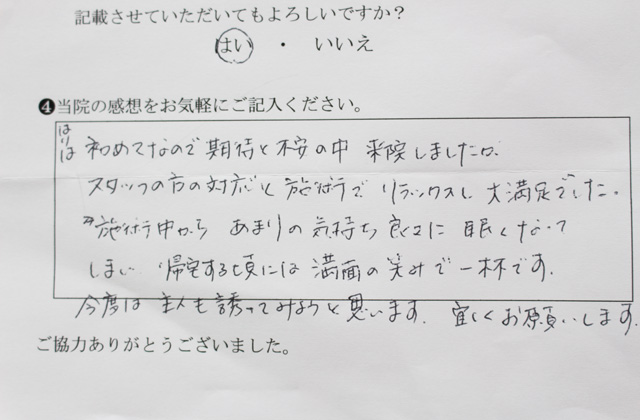 記載させていただいてもよろしいですか？
はい ・ いいえ
❹当院の感想をお気軽にご記入ください。
はりは 初めてなので期待と不安の中 来院しましたが、
スタッフの方の対応と施術で リラックスし 大満足でした。
施術中から あまりの気持ち良さに 眠くなって
しまい 帰宅する頃には 満面の笑みで一杯です。
今度は主人も誘ってみようと思います。 宜しくお願いします。
ご協力ありがとうございました。